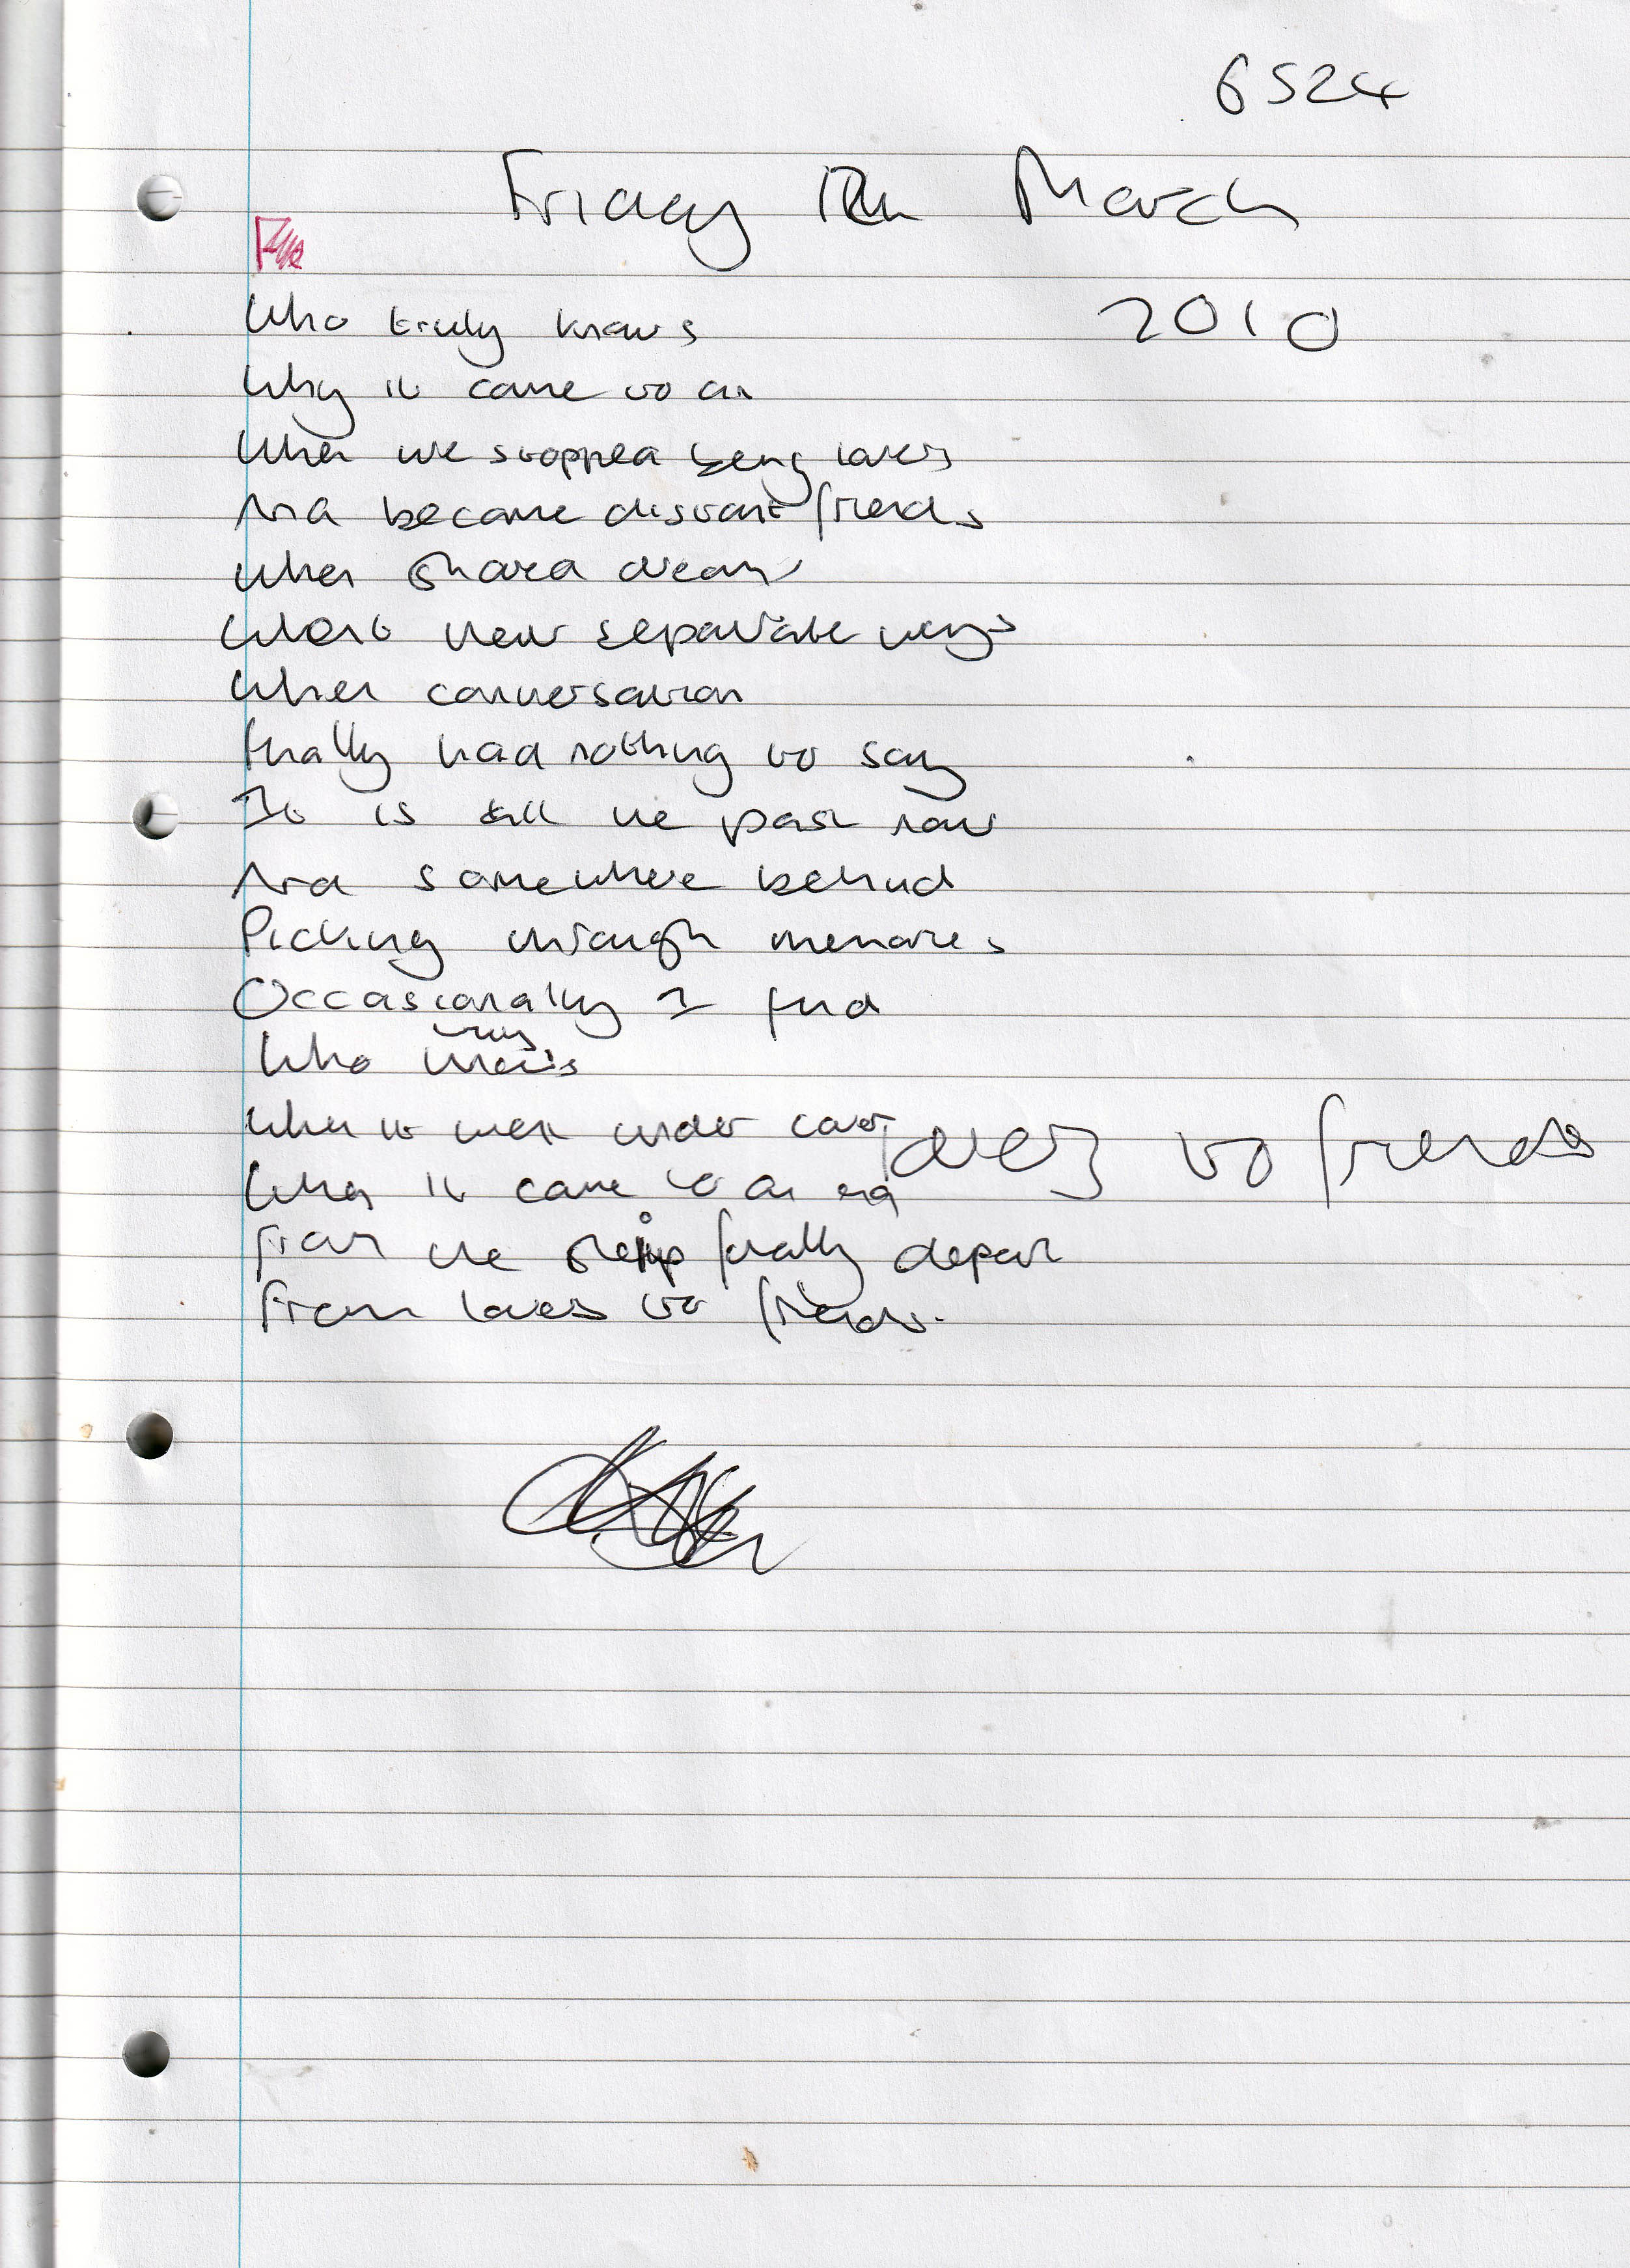 6524
Friday 12th March
2010
Who truly knows
Why it came to an
When we stopped being lovers
And became distant friends
When shared dreams
Went their separate ways
When conversation
finally had nothing to say
It is all the past now
And somewhere behind
Picking through memories
Occasionally I find
Who
When it went under cover
lovers to friends
When it came to an end
From the ship finally depart
From lovers to friends.